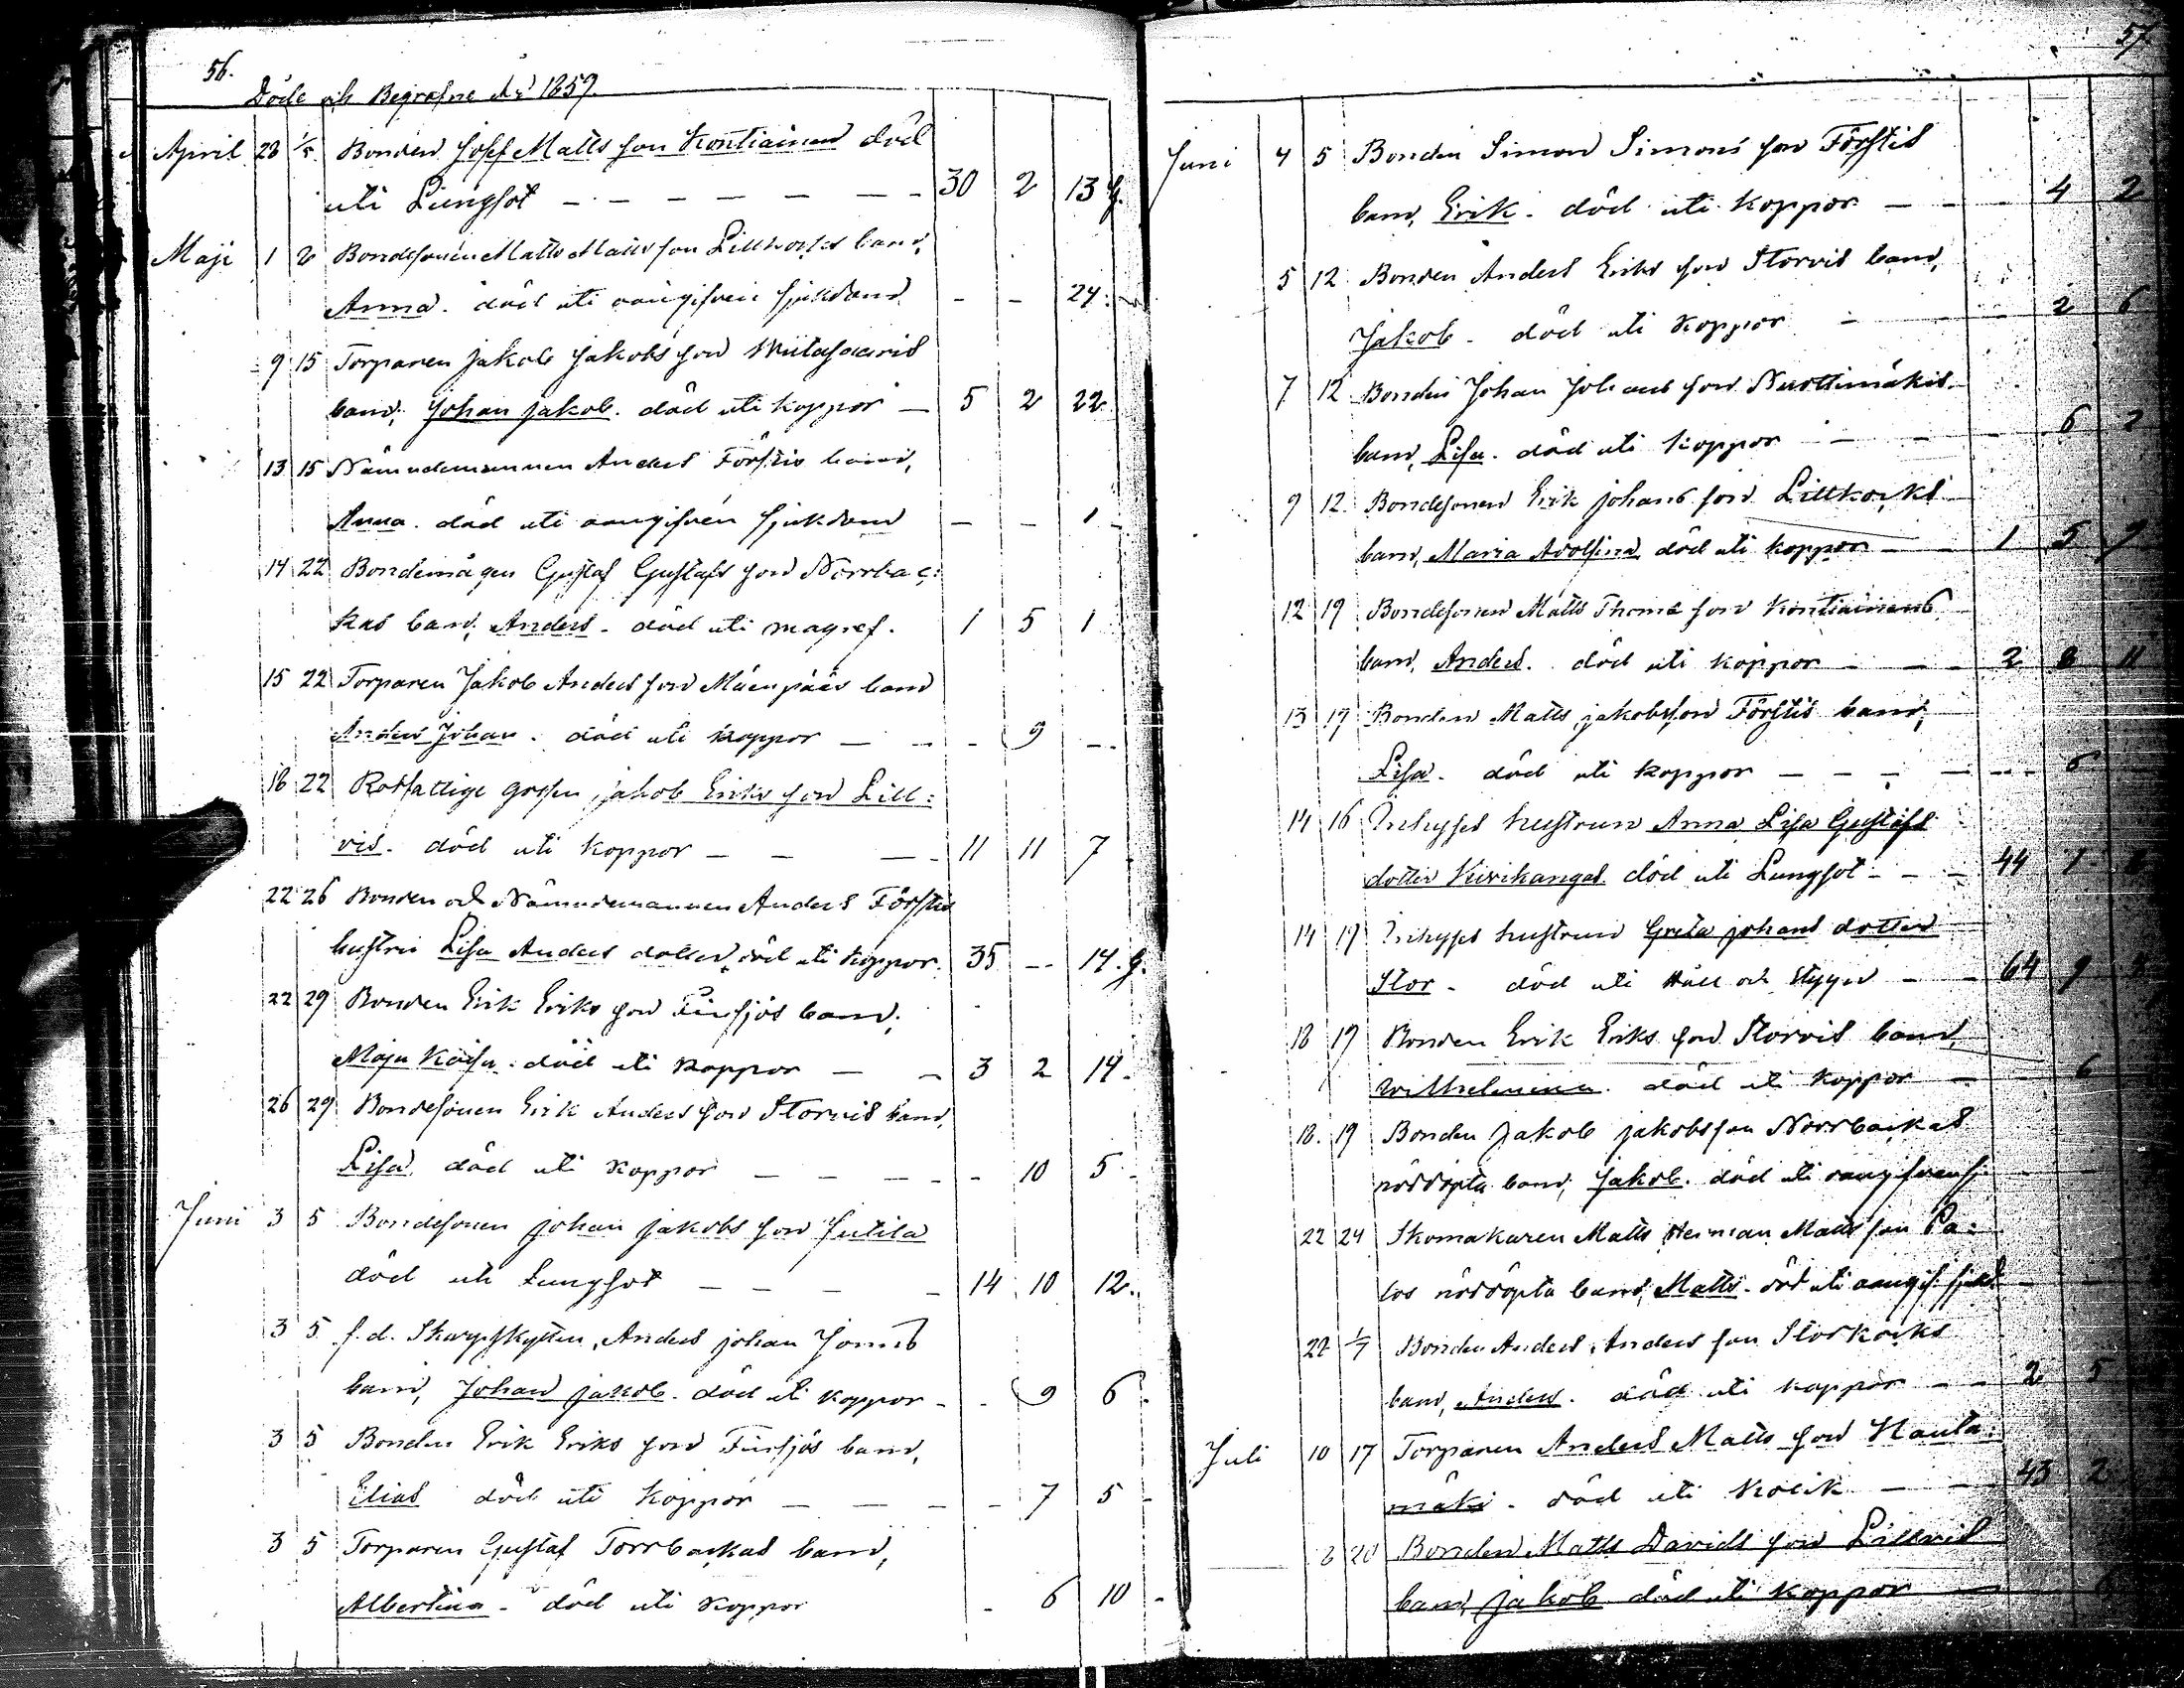 56.
Döde och Begrafne År 1859.
April 28 1/5 Bonden Josef Matts son Kontiainen död
uti Lungsot - - - - - - 30 2 13 g.
Maji 1 2 Bondesonen Matts Matts son Lillkocks barn,
Anna. död uti oangifven sjukdom - - 24.
9 15 Torparen Jakob Jakobs son
barn, Johan Jakob. död uti koppor - 5 2 22
13 15 Nämndemannen Anders Förstis barn,
Anna. död uti oangifven sjukdom - - 1 -
14 22 Bondemågen Gustaf Gustafs son Norrbac:
kas barn, Anders. död uti magref. 1 5 1
15 22 Torparen Jakob Anders son Mäenpääs barn
Anders Johan. död uti koppor - - - 9 -
18 22 Rotfattige gossen, Jakob Eriks son Lill:
vis. död uti koppor - - - 11 11 7
22 26 Bonden och Nämndemannen Anders Förstis
hustru Lisa Anders dotter, död uti koppor. 35 - 14. g.
22 29 Bonden Erik Eriks son Finsjös barn,
Maja Kaisa. död uti koppor - - 3 2 14.
26 29 Bondesonen Erik Anders son Storvis barn,
Lisa död uti koppor - - - - 10 5 -
Juni 3 5 Bondesonen Johan Jakobs son Jutila
död uti Lungsot - - - - 14 10 12.
3 5 f.d. Skarpskytten, Anders Johan
barn, Johan Jakob. död uti koppor - - 9 6.
3 5 Bonden Erik Eriks son Finsjös barn,
Elias död uti koppor - - - - 7 5 -
3 5 Torparen Gustaf Torrbackas barn,
Albertina - död uti koppor - 6 10 -
57
Juni 4 5 Bonden Simon Simons son Förstis
barn, Erik. död uti koppor - - 4 2
5 12 Bonden Anders Eriks son Storvis barn,
Jakob. död uti koppor - - - 2 6
7 12 Bonden Johan Johans son Nuottimäkis
barn, Lisa. död uti koppor - - - 6 2
9 12. Bondesonen Erik Johans son Lillkocks
barn, Maria Adolfina död uti koppor - - 1 5 7
12 19 Bondesonen Matts Thomæ son Kontiainens
barn, Anders. död uti koppor - - - 2 8 11
13 19 Bonden Matts Jakobs son Förstis barn,
Lisa. död uti koppor - - - - - 6
14 16 Inhyses hustrun Anna Lisa Gustafs
dotter Kivikangas död uti Lungsot - - - 44 7
14 19 Inhyses hustrun Greta Johans dotter
Stor - död uti Håll och Stygn - - 64 9
18 19 Bonden Erik Eriks son Storvis barn,
Wilhelmina. död uti koppor - 6
18. 19 Bonden Jakob Jakobs son Norrbackas
nöddöpta barn, Jakob. död uti oangifven sj
22 24 Skomakaren Matts Herman Matts son Pa-
los nöddöpta barn, Matts. död uti oangif. sjukd.
22 1/7 Bonden Anders Anders son Storkocks
barn, Anders. död uti koppor - - 2 5
Juli 10 17 Torparen Anders Matts son Hauta:
mäki. död uti Kolik - - 43 2
8 20 Bonden Matts Davids son Lillvis
barn, Jakob död uti koppor - 6